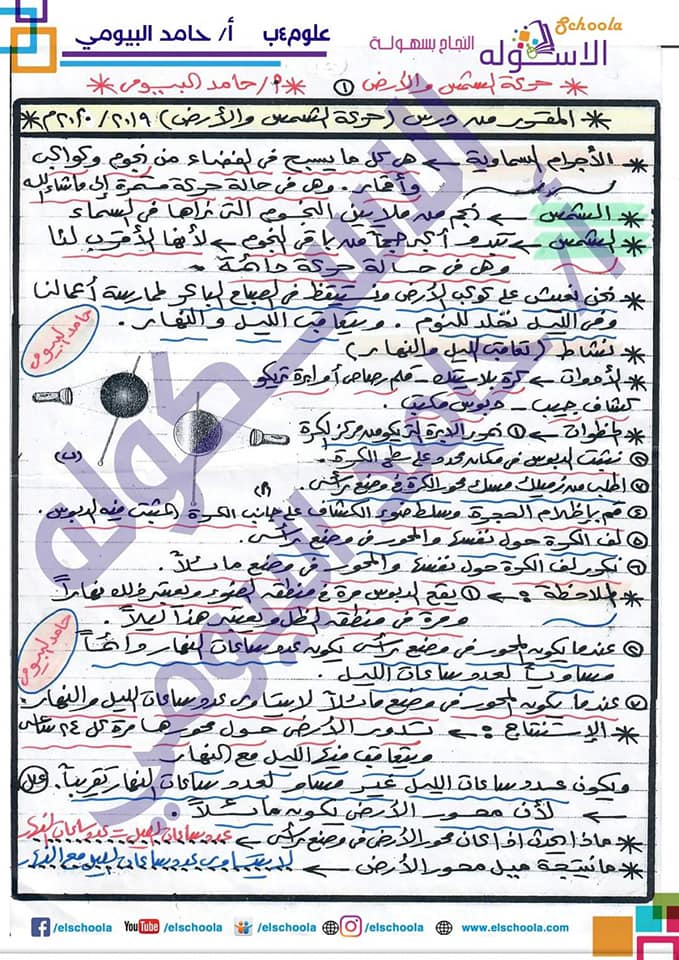 Schoola
علوم ٤ب أ/ حامد البيومي
الاسكوله
النجاح بسهولة
حركة الشمس والأرض ① أ/ حامد البيومى
* المقرر من درس (حركة الشمس والأرض) ٢٠١٩/٢٠٢٠م *
* الأجرام السماوية ← هى كل ما يسبح فى الفضاء من نجوم وكواكب
وأقمار . وهى فى حالة حركة مستمرة إلى ما شاء الله
* الشمس ← نجم من ملايين النجوم التى نراها فى السماء
* الشمس ← تبدو أكبر حجماً من باقى النجوم ← لأنها الأقرب لنا
وهى فى حالة حركة دائمة .
* نحن نعيش على كوكب الأرض ونستيقظ فى الصباح الباكر لممارسة أعمالنا
وفى الليل نخلد للنوم . ويتعاقب الليل والنهار .
* نشاط (تعاقب الليل والنهار)
* الأدوات ← كرة بلاستيك - قلم رصاص أو إبرة تريكو
كشاف جيب - دبوس مكتب .
* الخطوات ← ① تمرير الإبرة لتريكو من مركز الكرة
② نثبت الدبوس فى مكان محدد على سطح الكرة .
③ اطلب من زميلك مسك محور الكرة فى وضع رأسى .
④ قم بإظلام الحجرة وسلط ضوء الكشاف على جانب الكرة المثبت فيه الدبوس .
⑤ لف الكرة حول نفسها والمحور فى وضع رأسى .
⑥ نكرر لف الكرة حول نفسها والمحور فى وضع مائلاً .
* الملاحظة :- ← ① يقع الدبوس مرة فى منطقة الضوء ويعتبر ذلك نهاراً
ومرة فى منطقة الظل ويعتبر هذا ليلاً .
② عندما يكون المحور فى وضع رأسى يكون عدد ساعات النهار دائماً
مساوياً لعدد ساعات الليل .
③ عندما يكون المحور فى وضع مائلاً لا يتساوى عدد ساعات الليل والنهار .
* الإستنتاج :- ← تدور الأرض حول محورها مرة كل ٢٤ ساعة
ويتعاقب فيها الليل مع النهار
ويكون عدد ساعات الليل غير مساو لعدد ساعات النهار تقريباً . علل
← لأن محور الأرض يكون مائلاً .
* ماذا يحدث إذا كان محور الأرض فى وضع رأسى ← عدد ساعات الليل = عدد ساعات النهار
* ما نتيجة ميل محور الأرض ← لا يتساوى عدد ساعات الليل مع النهار
حامد البيومى
(ب)
(أ)
حامد البيومى
الاسكوله
أ/ حامد البيومي
/elschoola
YouTube /elschoola
/elschoola
/elschoola
www.elschoola.com